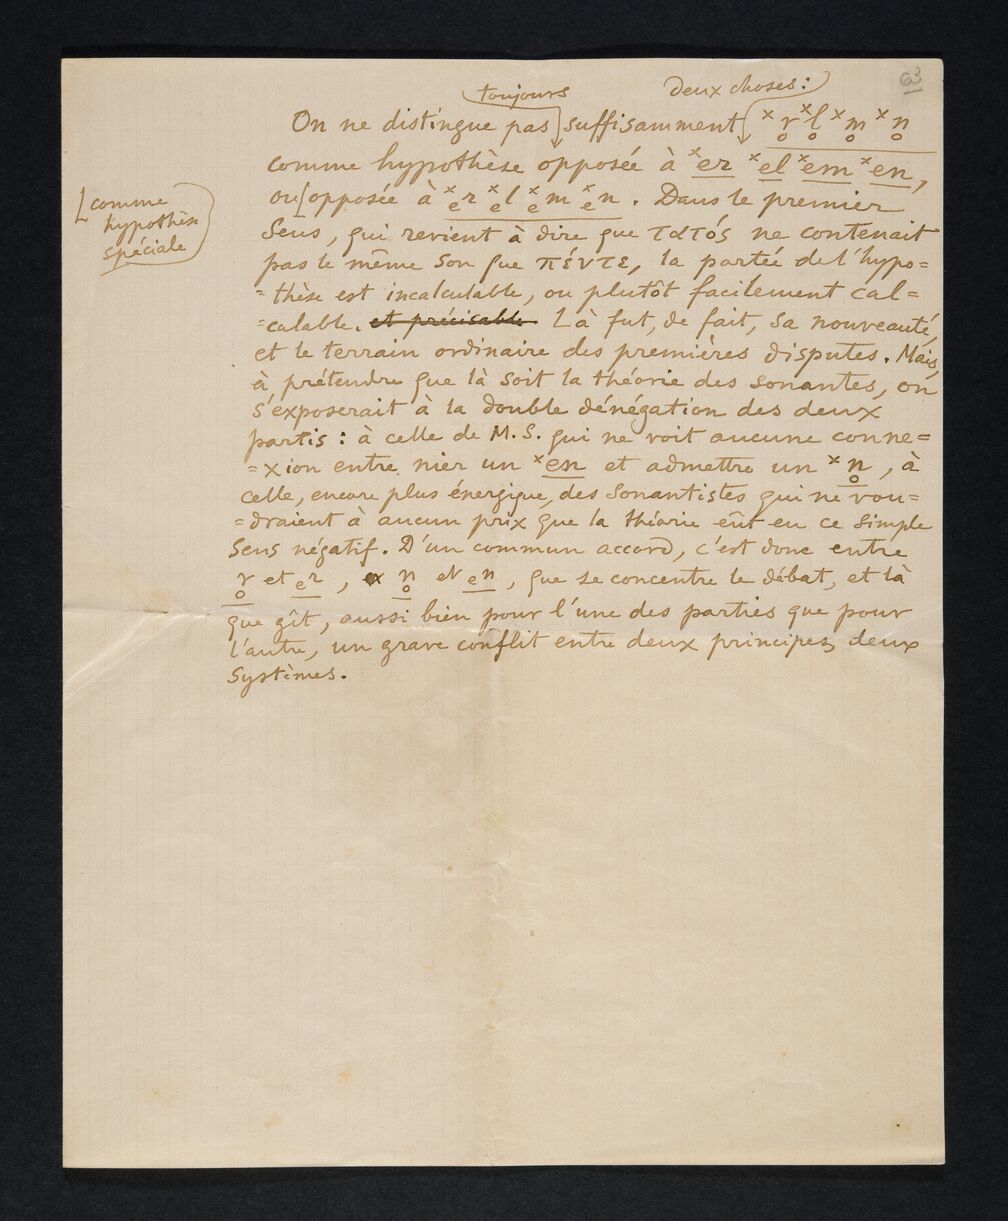 63
toujours deux choses:
On ne distingue pas suffisamment *r̥ *l̥ *m̥ *n̥
comme hypothèse opposée à *er *el *em *en,
ou [opposée à *ₑr *ₑl *ₑm *ₑn. Dans le premier
[comme
hypothèse
spéciale
sens, qui revient à dire que τατός ne contenait
pas le même son que πέντε, la portée de l'hypo=
=thèse est incalculable, ou plutôt facilement cal=
=culable. et précisable. Là fut, de fait, sa nouveauté,
et le terrain ordinaire des premières disputes. Mais,
à prétendre que là soit la théorie des sonantes, on
s'exposerait à la double dénégation des deux
partis : à celle de M.S. qui ne voit aucune conne=
=xion entre nier un *en et admettre un *n̥, à
celle, encore plus énergique, des sonantistes qui ne vou=
=draient à aucun prix que la théorie eût eu ce simple
sens négatif. D'un commun accord, c'est donc entre
r̥ et ₑr, n̥ et ₑn, que se concentre le débat, et là
que gît, aussi bien pour l'une des parties que pour
l'autre, un grave conflit entre deux principes, deux
systèmes.